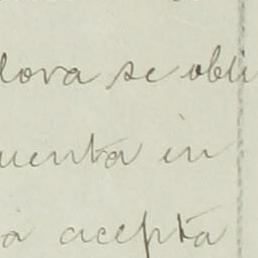 lora se obli
uenta in
a acepta